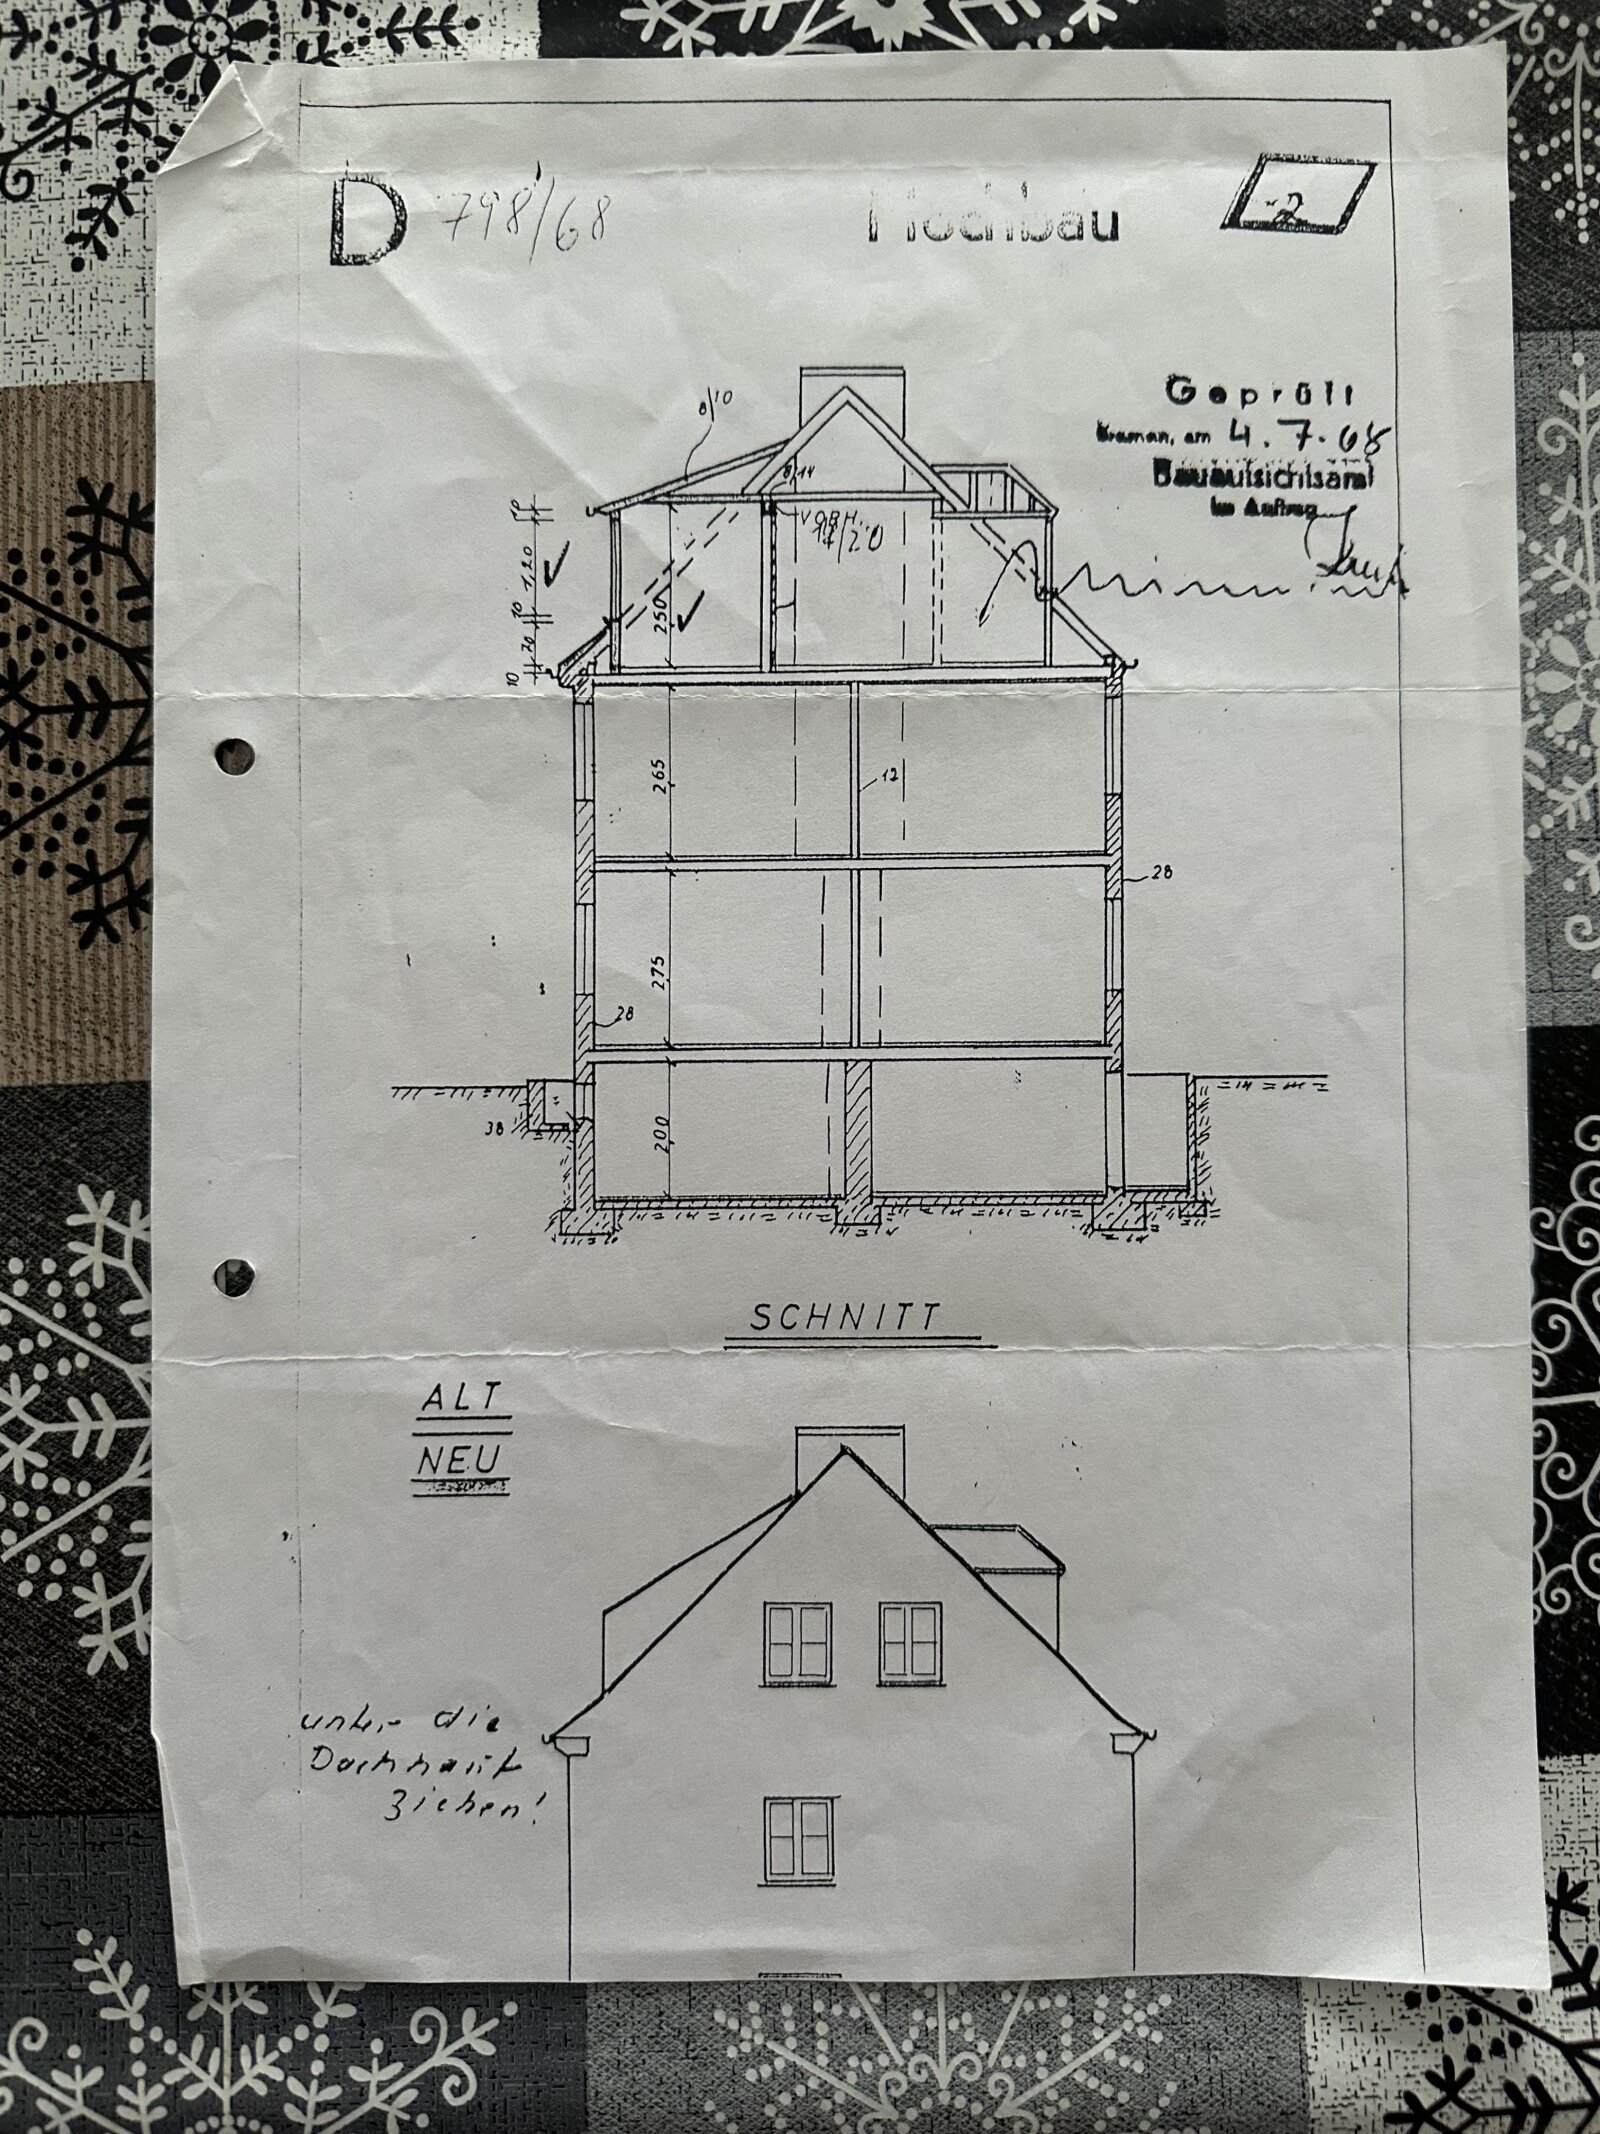 D 798/68
Hochbau
Geprüft
Bremen, am 4.7.68
Bauaufsichtsamt
Im Auftrag
8/10
8/14
VORH.
14/20
10
1,20
10
70
10
250
265
12
28
275
28
38
200
SCHNITT
ALT
NEU
unter die
Dachhaut
ziehen!